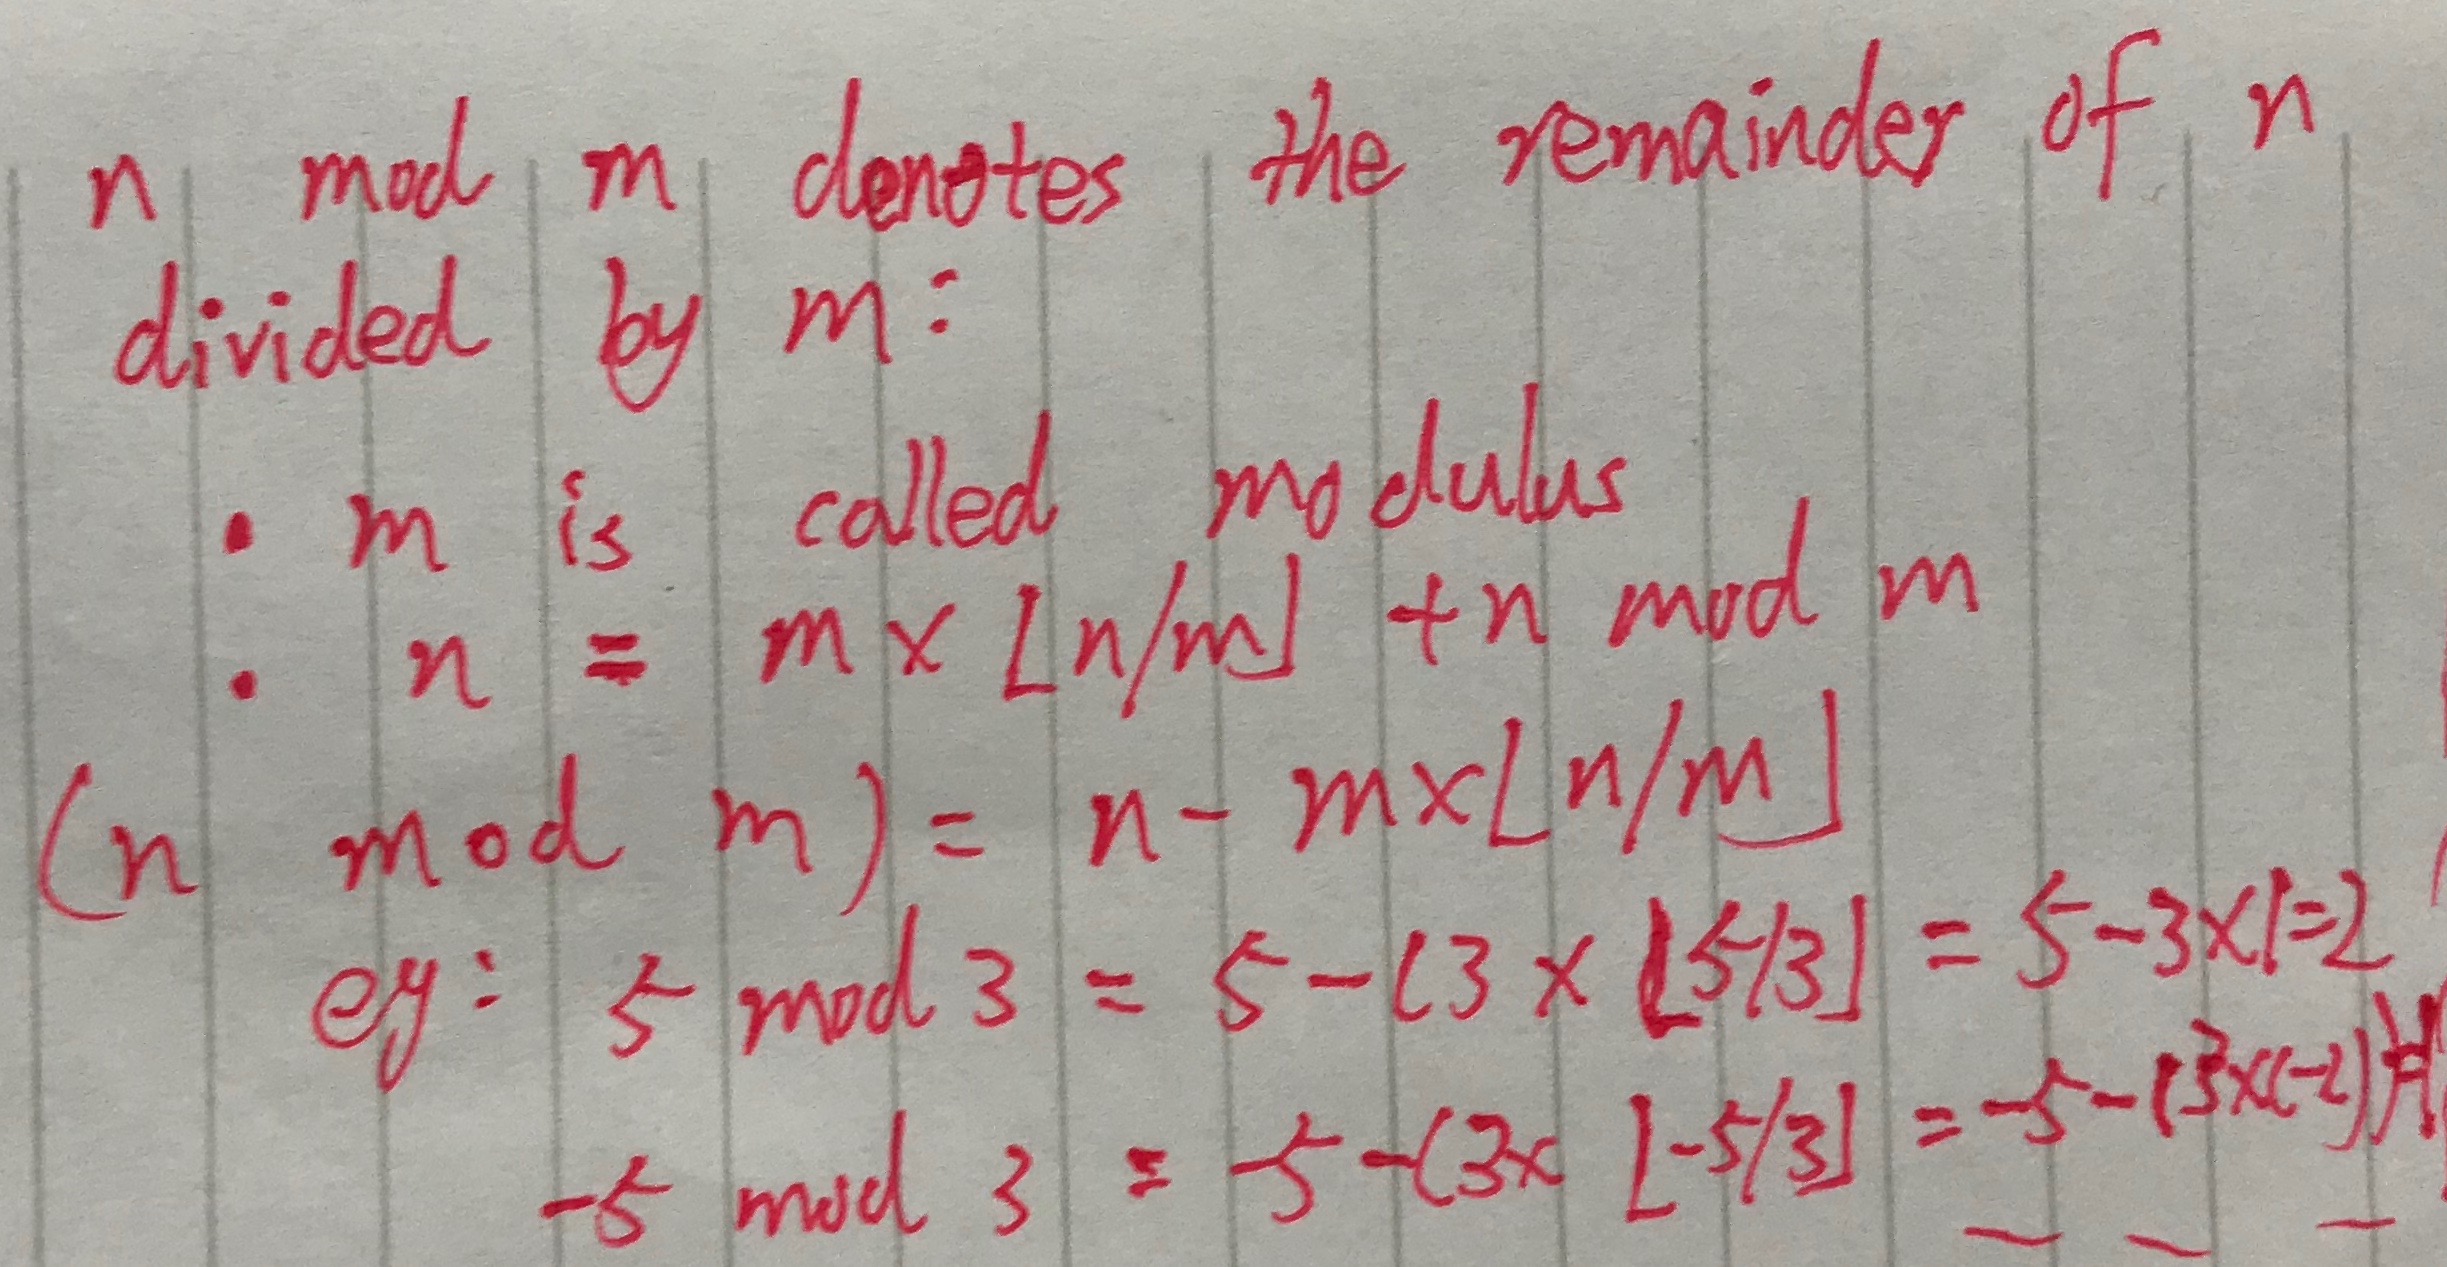 n mod m denotes the remainder of n
divided by m:
• m is called modulus
• n = m × ⌊n/m⌋ + n mod m
(n mod m) = n - m×⌊n/m⌋
eg: 5 mod 3 = 5 - (3 × ⌊5/3⌋ = 5 - 3×1=2
-5 mod 3 = -5 - (3× ⌊-5/3⌋ = -5 - (3×(-2))=1